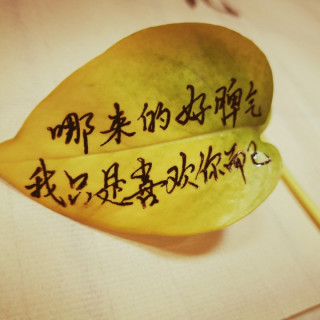 哪来的好脾气
我只是喜欢你而已